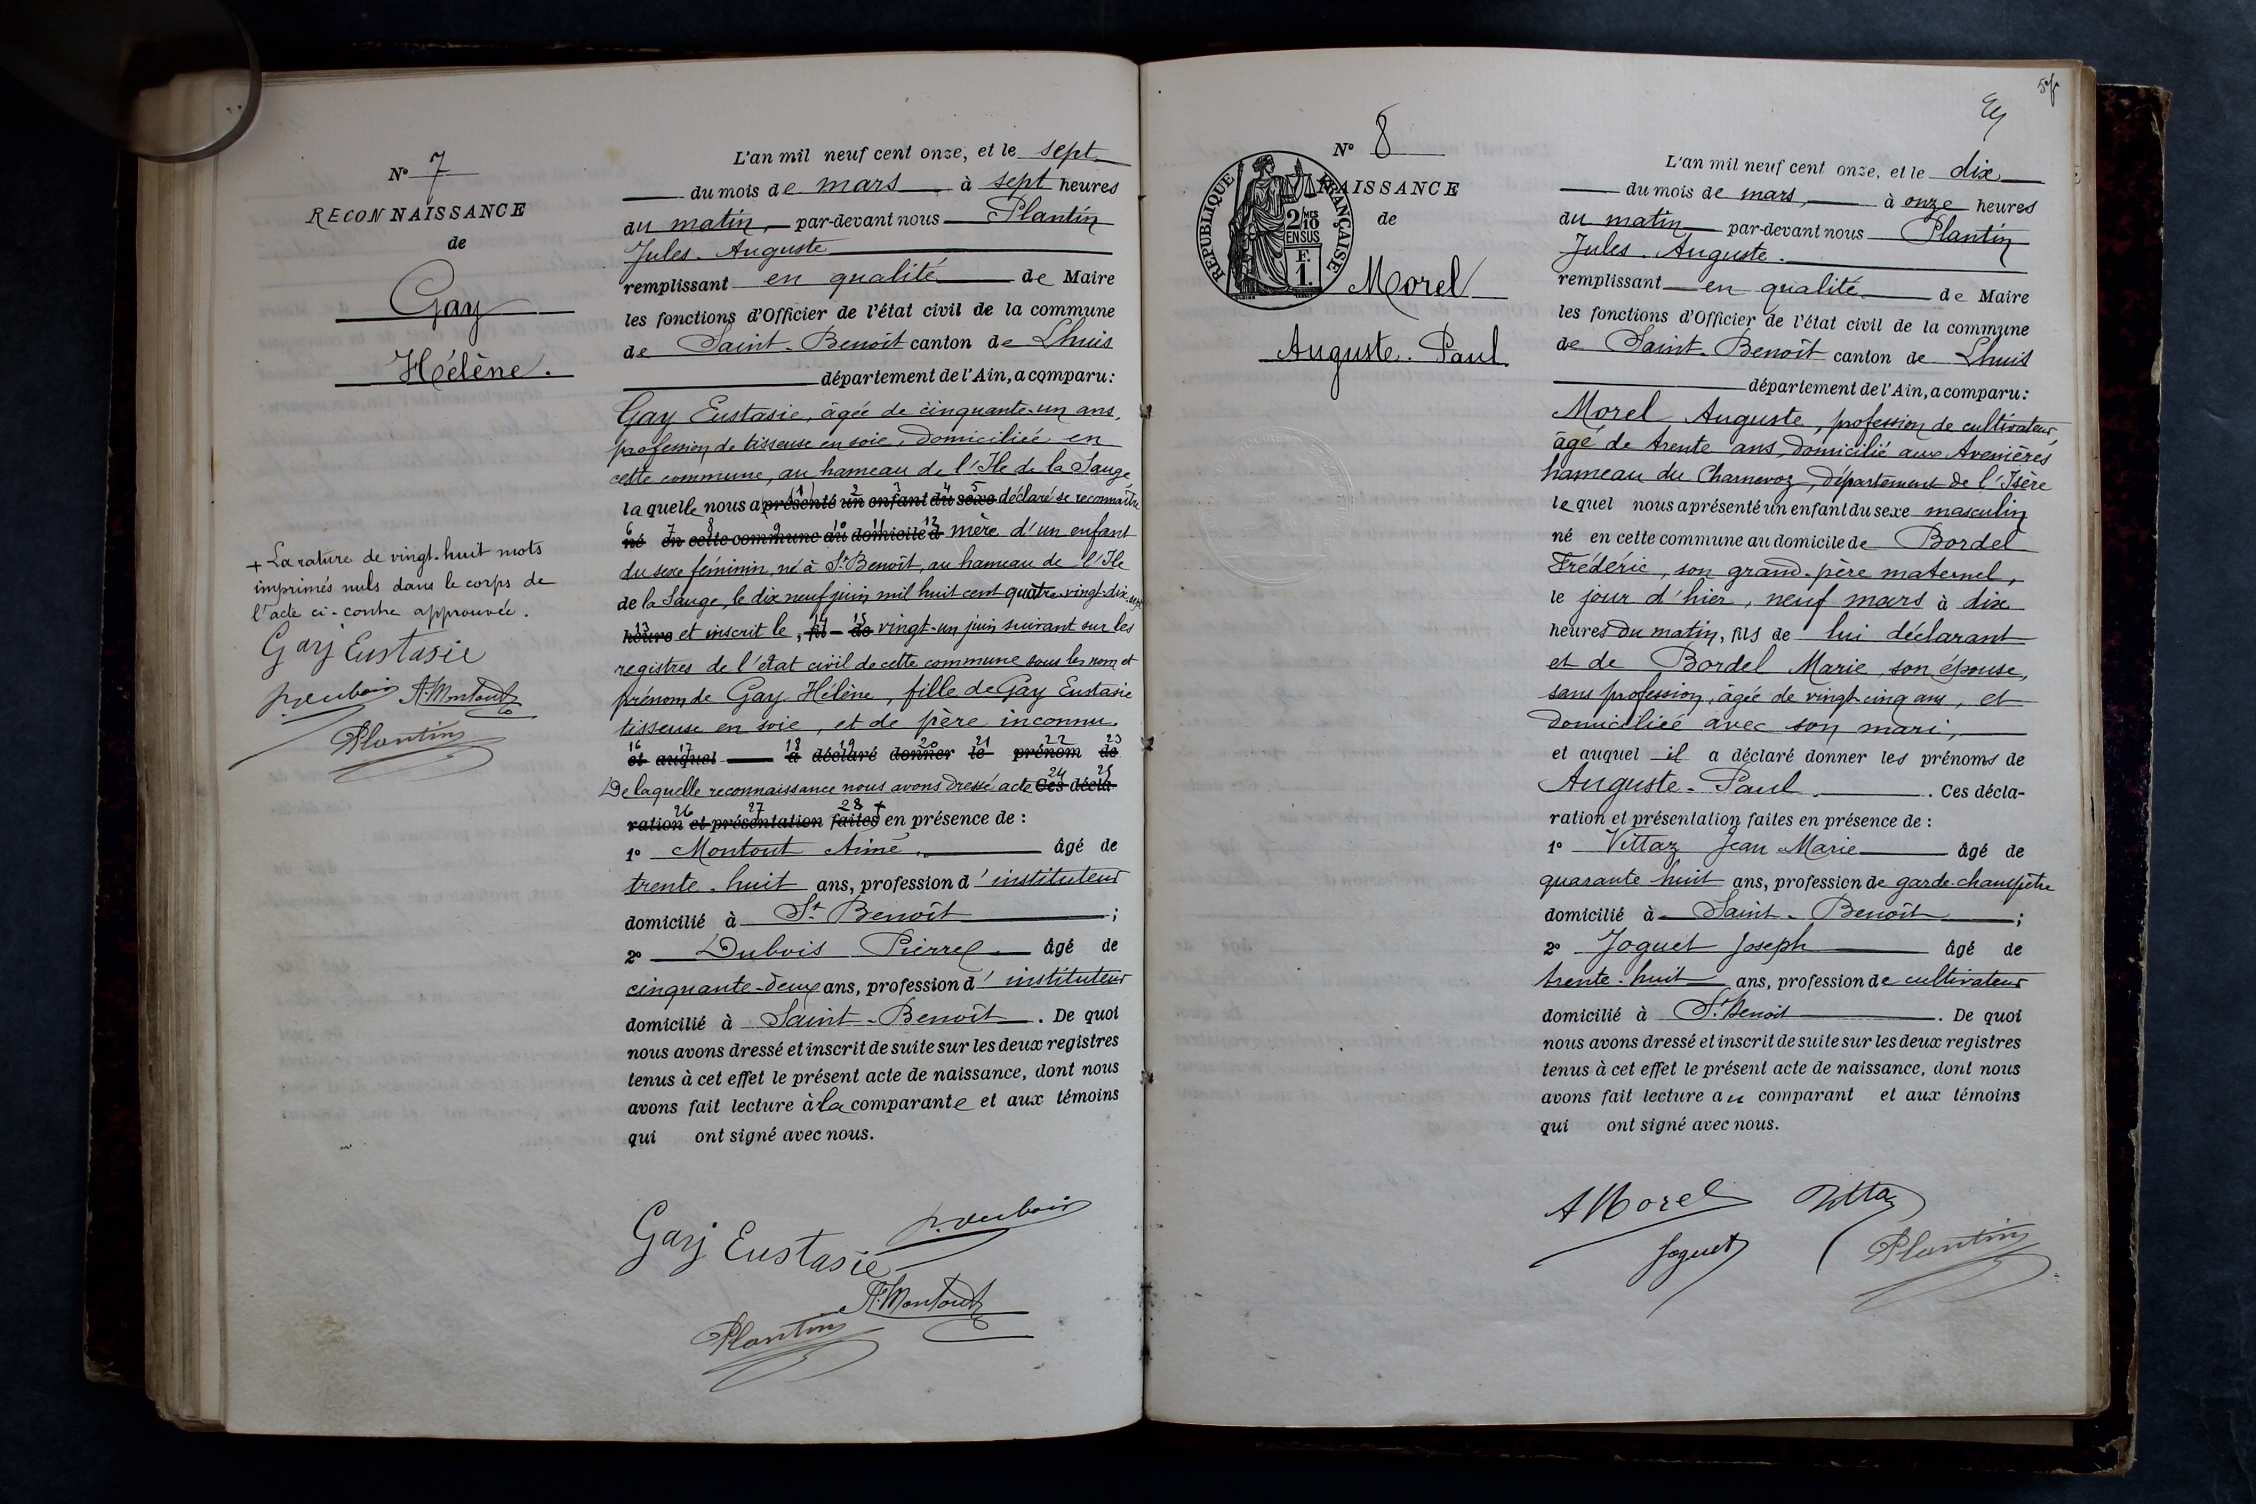 N° 7
RECONNAISSANCE
de
Gay
Hélène.
L'an mil neuf cent onze, et le sept
du mois de mars à sept heures
du matin, par-devant nous Plantin
Jules Auguste
remplissant en qualité de Maire
les fonctions d'Officier de l'état civil de la commune
de Saint-Benoît canton de Lhuis
département de l'Ain, a comparu:
Gay Eustasie, âgée de cinquante-un ans,
profession de tisseuse en soie, domiciliée en
cette commune, au hameau de l'Ile de la Sauge
laquelle nous a présenté 1 un 2 enfant 3 du 4 sexe 5 déclaré se reconnaître
né 6 en 7 cette 8 commune 9 au 10 domicile 11 d 12 mère d'un enfant
du sexe féminin, né à St Benoît, au hameau de l'Ile
de la Sauge, le dix neuf juin mil huit cent quatre-vingt-dix
heure 13 et inscrit le, fil 14 - de 15 vingt-un juin suivant sur les
registres de l'état civil de cette commune sous les nom et
prénom de Gay Hélène, fille de Gay Eustasie
tisseuse en soie, et de père inconnu.
et 16 auquel 17 a 18 déclaré 19 donner 20 le 21 prénom 22 de 23
De laquelle reconnaissance nous avons dressé acte Ces 24 décla- 25
ration 26 et présentation 27 faites 28 + en présence de :
1° Montout Aimé, âgé de
trente-huit ans, profession d'instituteur
domicilié à St Benoît ;
2° Dubois Pierre âgé de
cinquante-deux ans, profession d'instituteur
domicilié à Saint-Benoît. De quoi
nous avons dressé et inscrit de suite sur les deux registres
tenus à cet effet le présent acte de naissance, dont nous
avons fait lecture à la comparante et aux témoins
qui ont signé avec nous.
+ La rature de vingt-huit mots
imprimés nuls dans le corps de
l'acte ci-contre approuvée.
Gay Eustasie
P. Dubois A. Montout
Plantin
Gay Eustasie P. Dubois
A. Montout
Plantin
N° 8
NAISSANCE
de
RÉPUBLIQUE FRANÇAISE
2/10 MES
EN SUS
F.
1.
Morel
Auguste-Paul
L'an mil neuf cent onze, et le dix
du mois de mars, à onze heures
du matin par-devant nous Plantin
Jules Auguste.
remplissant en qualité de Maire
les fonctions d'Officier de l'état civil de la commune
de Saint-Benoît canton de Lhuis
département de l'Ain, a comparu:
Morel Auguste, profession de cultivateur,
âgé de trente ans, domicilié aux Avenières
hameau du Charnevoz, département de l'Isère
lequel nous a présenté un enfant du sexe masculin
né en cette commune au domicile de Bordel
Frédéric, son grand-père maternel,
le jour d'hier, neuf mars à dix
heures du matin, fils de lui déclarant
et de Bordel Marie, son épouse,
sans profession, âgée de vingt-cinq ans, et
domiciliée avec son mari,
et auquel il a déclaré donner les prénoms de
Auguste-Paul. Ces décla-
ration et présentation faites en présence de :
1° Vittaz Jean Marie âgé de
quarante-huit ans, profession de garde-champêtre
domicilié à Saint-Benoît ;
2° Joguet Joseph âgé de
trente-huit ans, profession de cultivateur
domicilié à St Benoît. De quoi
nous avons dressé et inscrit de suite sur les deux registres
tenus à cet effet le présent acte de naissance, dont nous
avons fait lecture au comparant et aux témoins
qui ont signé avec nous.
A Morel Vittaz
Joguet Plantin